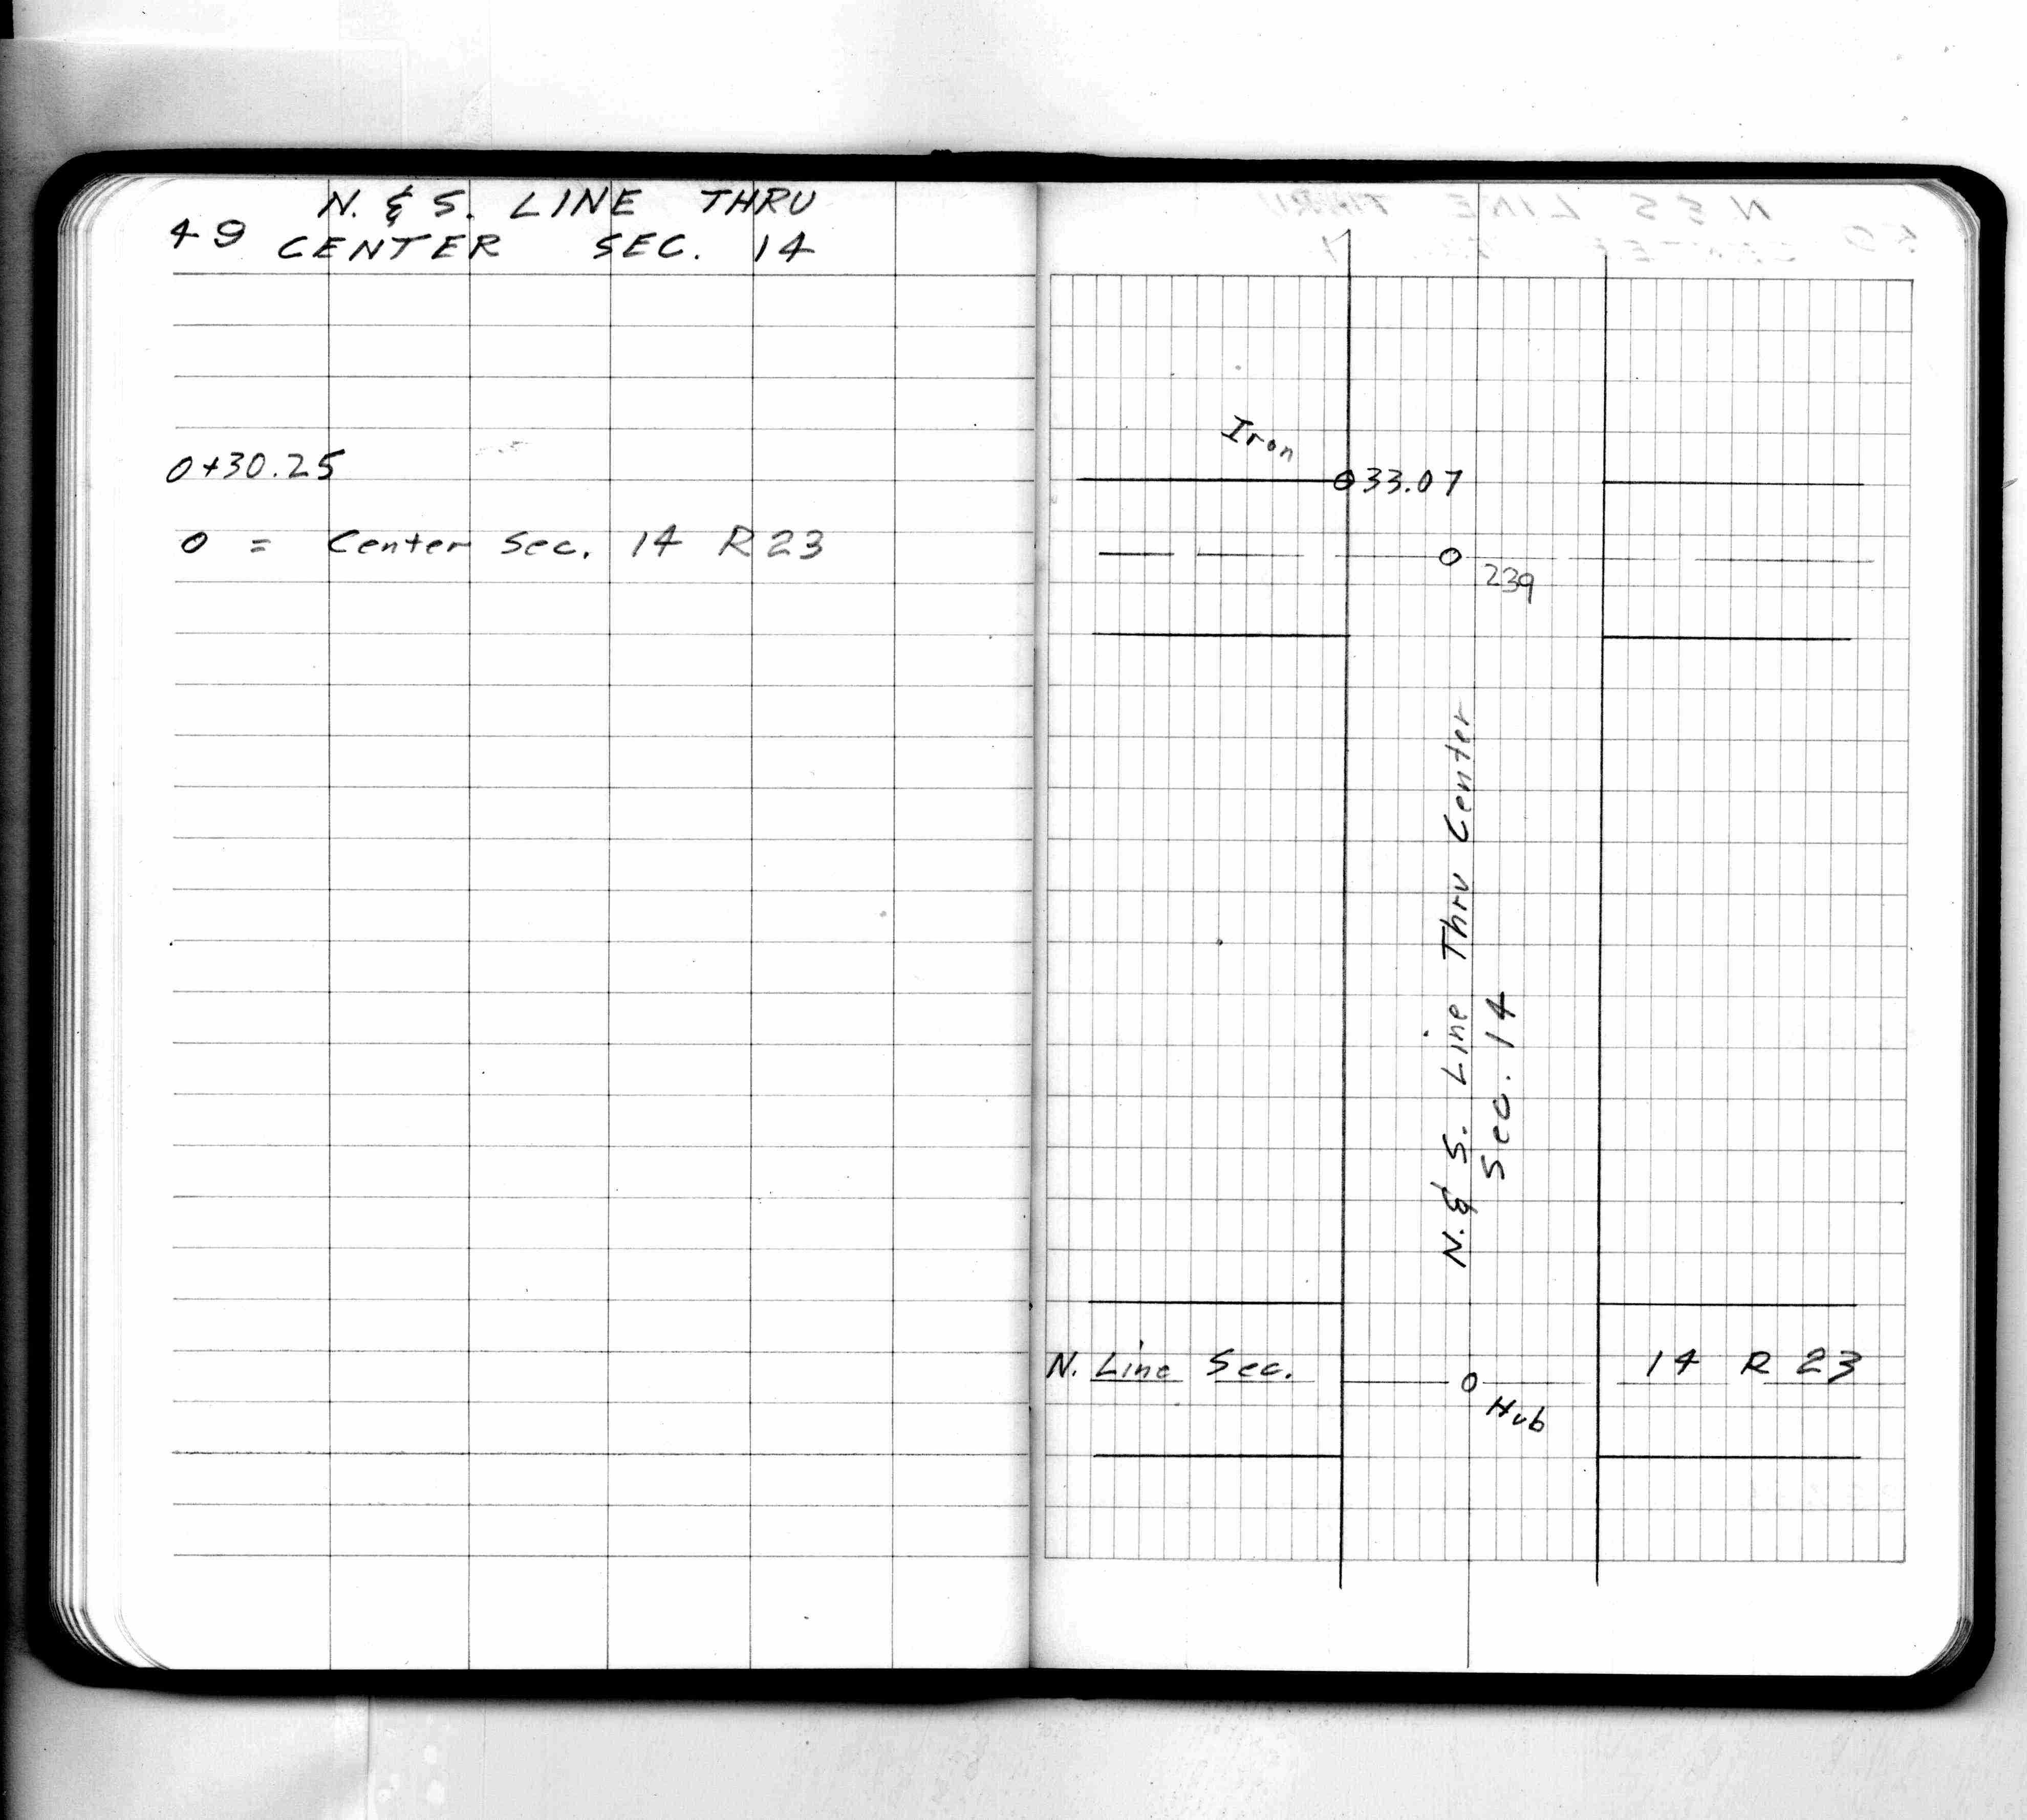 N. & S. LINE THRU
49 CENTER SEC. 14
0+30.25
0 = Center Sec. 14 R 23
Iron
33.07
239
N. & S. Line Thru Center
Sec. 14
N. Line Sec. 14 R 23
Hub